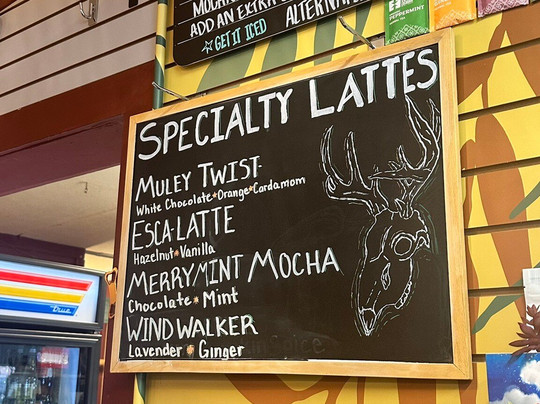 MOCHA
ADD AN EXTRA
☆GET IT ICED ALTERNA
PEPPERMINT
SPECIALTY LATTES
MULEY TWIST
White Chocolate•Orange•Cardamom
ESCA-LATTE
Hazelnut•Vanilla
MERRYMINT MOCHA
Chocolate•Mint
WINDWALKER
Lavender • Ginger